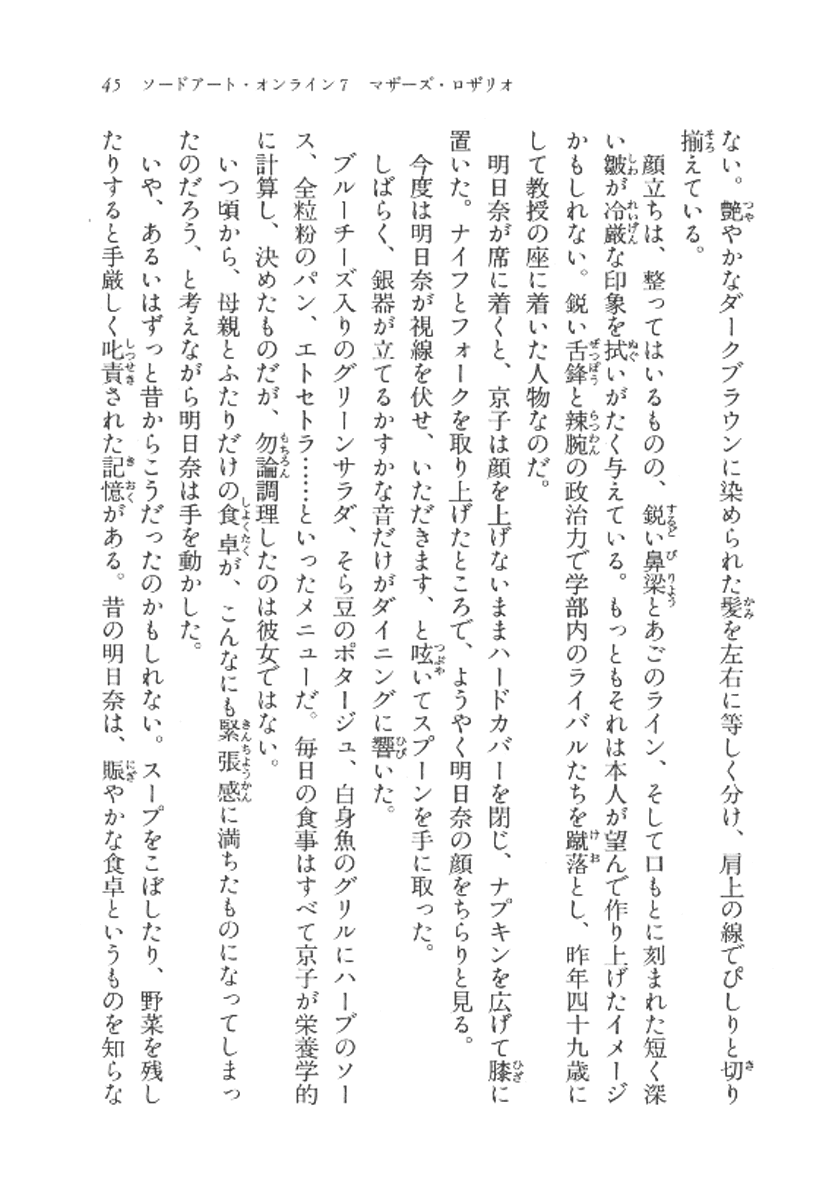 45　ソードアート・オンライン7　マザーズ・ロザリオ
ない。艶やかなダークブラウンに染められた髪を左右に等しく分け、肩上の線でぴしりと切り
揃えている。
　顔立ちは、整ってはいるものの、鋭い鼻梁とあごのライン、そして口もとに刻まれた短く深
い皺が冷厳な印象を拭いがたく与えている。もっともそれは本人が望んで作り上げたイメージ
かもしれない。鋭い舌鋒と辣腕の政治力で学部内のライバルたちを蹴落とし、昨年四十九歳に
して教授の座に着いた人物なのだ。
　明日奈が席に着くと、京子は顔を上げないままハードカバーを閉じ、ナプキンを広げて膝に
置いた。ナイフとフォークを取り上げたところで、ようやく明日奈の顔をちらりと見る。
　今度は明日奈が視線を伏せ、いただきます、と呟いてスプーンを手に取った。
　しばらく、銀器が立てるかすかな音だけがダイニングに響いた。
　ブルーチーズ入りのグリーンサラダ、そら豆のポタージュ、白身魚のグリルにハーブのソー
ス、全粒粉のパン、エトセトラ……といったメニューだ。毎日の食事はすべて京子が栄養学的
に計算し、決めたものだが、勿論調理したのは彼女ではない。
　いつ頃から、母親とふたりだけの食卓が、こんなにも緊張感に満ちたものになってしまっ
たのだろう、と考えながら明日奈は手を動かした。
　いや、あるいはずっと昔からこうだったのかもしれない。スープをこぼしたり、野菜を残し
たりすると手厳しく叱責された記憶がある。昔の明日奈は、賑やかな食卓というものを知らな